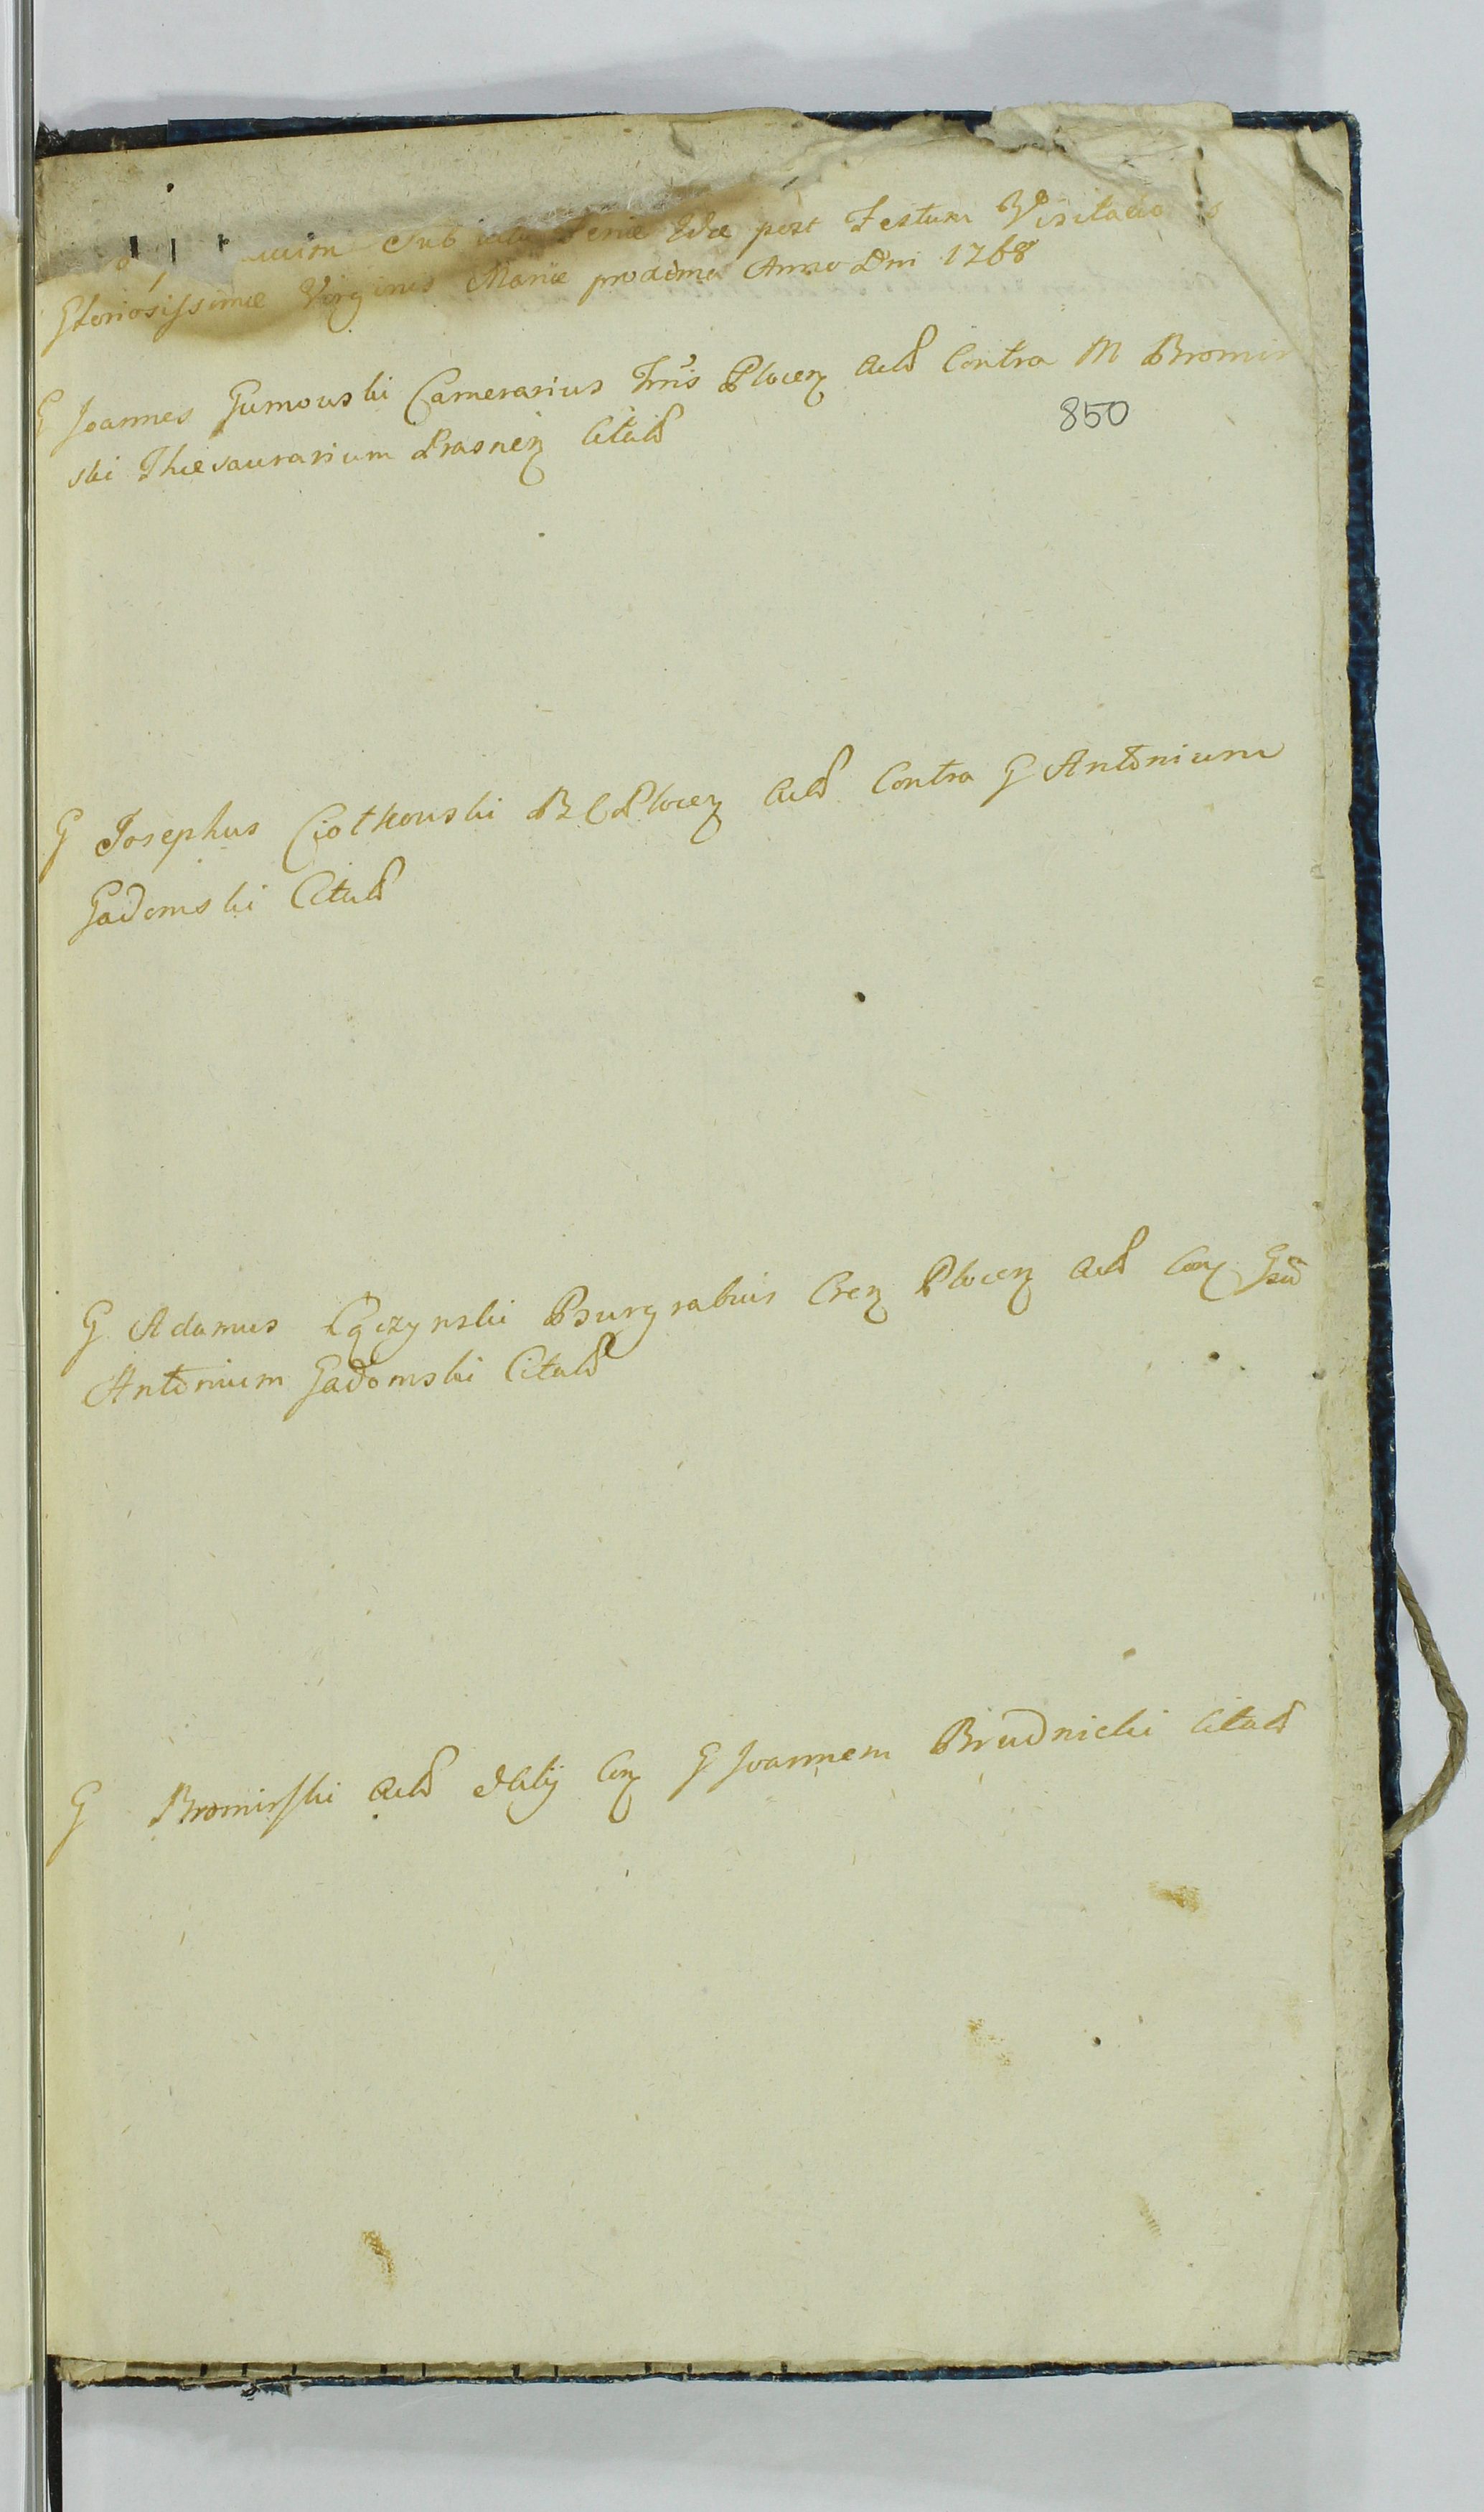 Sub Feriæ 2dæ post Festum Visitatio s
Gloriosissimæ Virginis Mariæ proxima Anno Dni 1768
G Joannes Gumowski Camerarius Tr̃ris Plocen Actõ Contra M Bromir
850
ski Thesaurarium Prasnen Citatõ
G Josephus Ciotkowski B C Plocen Actõ Contra G Antonium
Gadomski Citatõ
G Adamus Łączynski Burgrabius Cren Plocen Actõ Con Gsũ
Antonium Gadomski Citatõ
G Bromirski Actõ Con G Joannem Brudnicki Citatõ